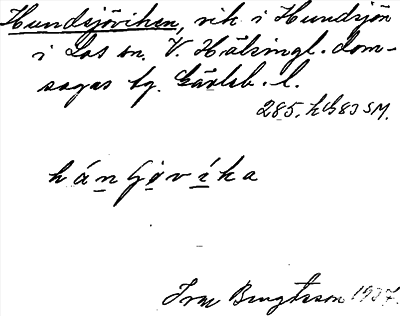 Hundsjöviken, vik i Hundsjön
i Los sn. V. Hälsingl. dom-
sagas tg. Gävleb. l.
285. hb83 SM.
hánʃøvíka
Ivar Bengtsson 1937.